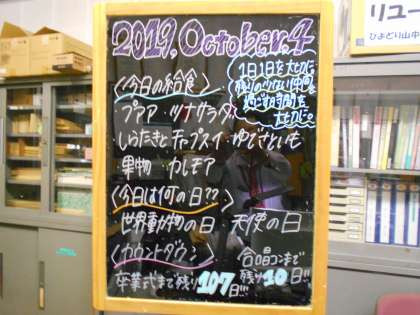 2019. October. 4
1日1日を大切に。
残り少ない仲間と
過ごす時間を
大切に。
〈今日の給食〉
プアア ツナサラダ
しらたきとチャプスイ ゆでさといも
果物 カレモア
〈今日は何の日??〉
世界動物の日 天使の日
〈カウントダウン〉
卒業式まで残り107日!!!
合唱コンまで
残り10日!!!
リユー
ひよどり山中